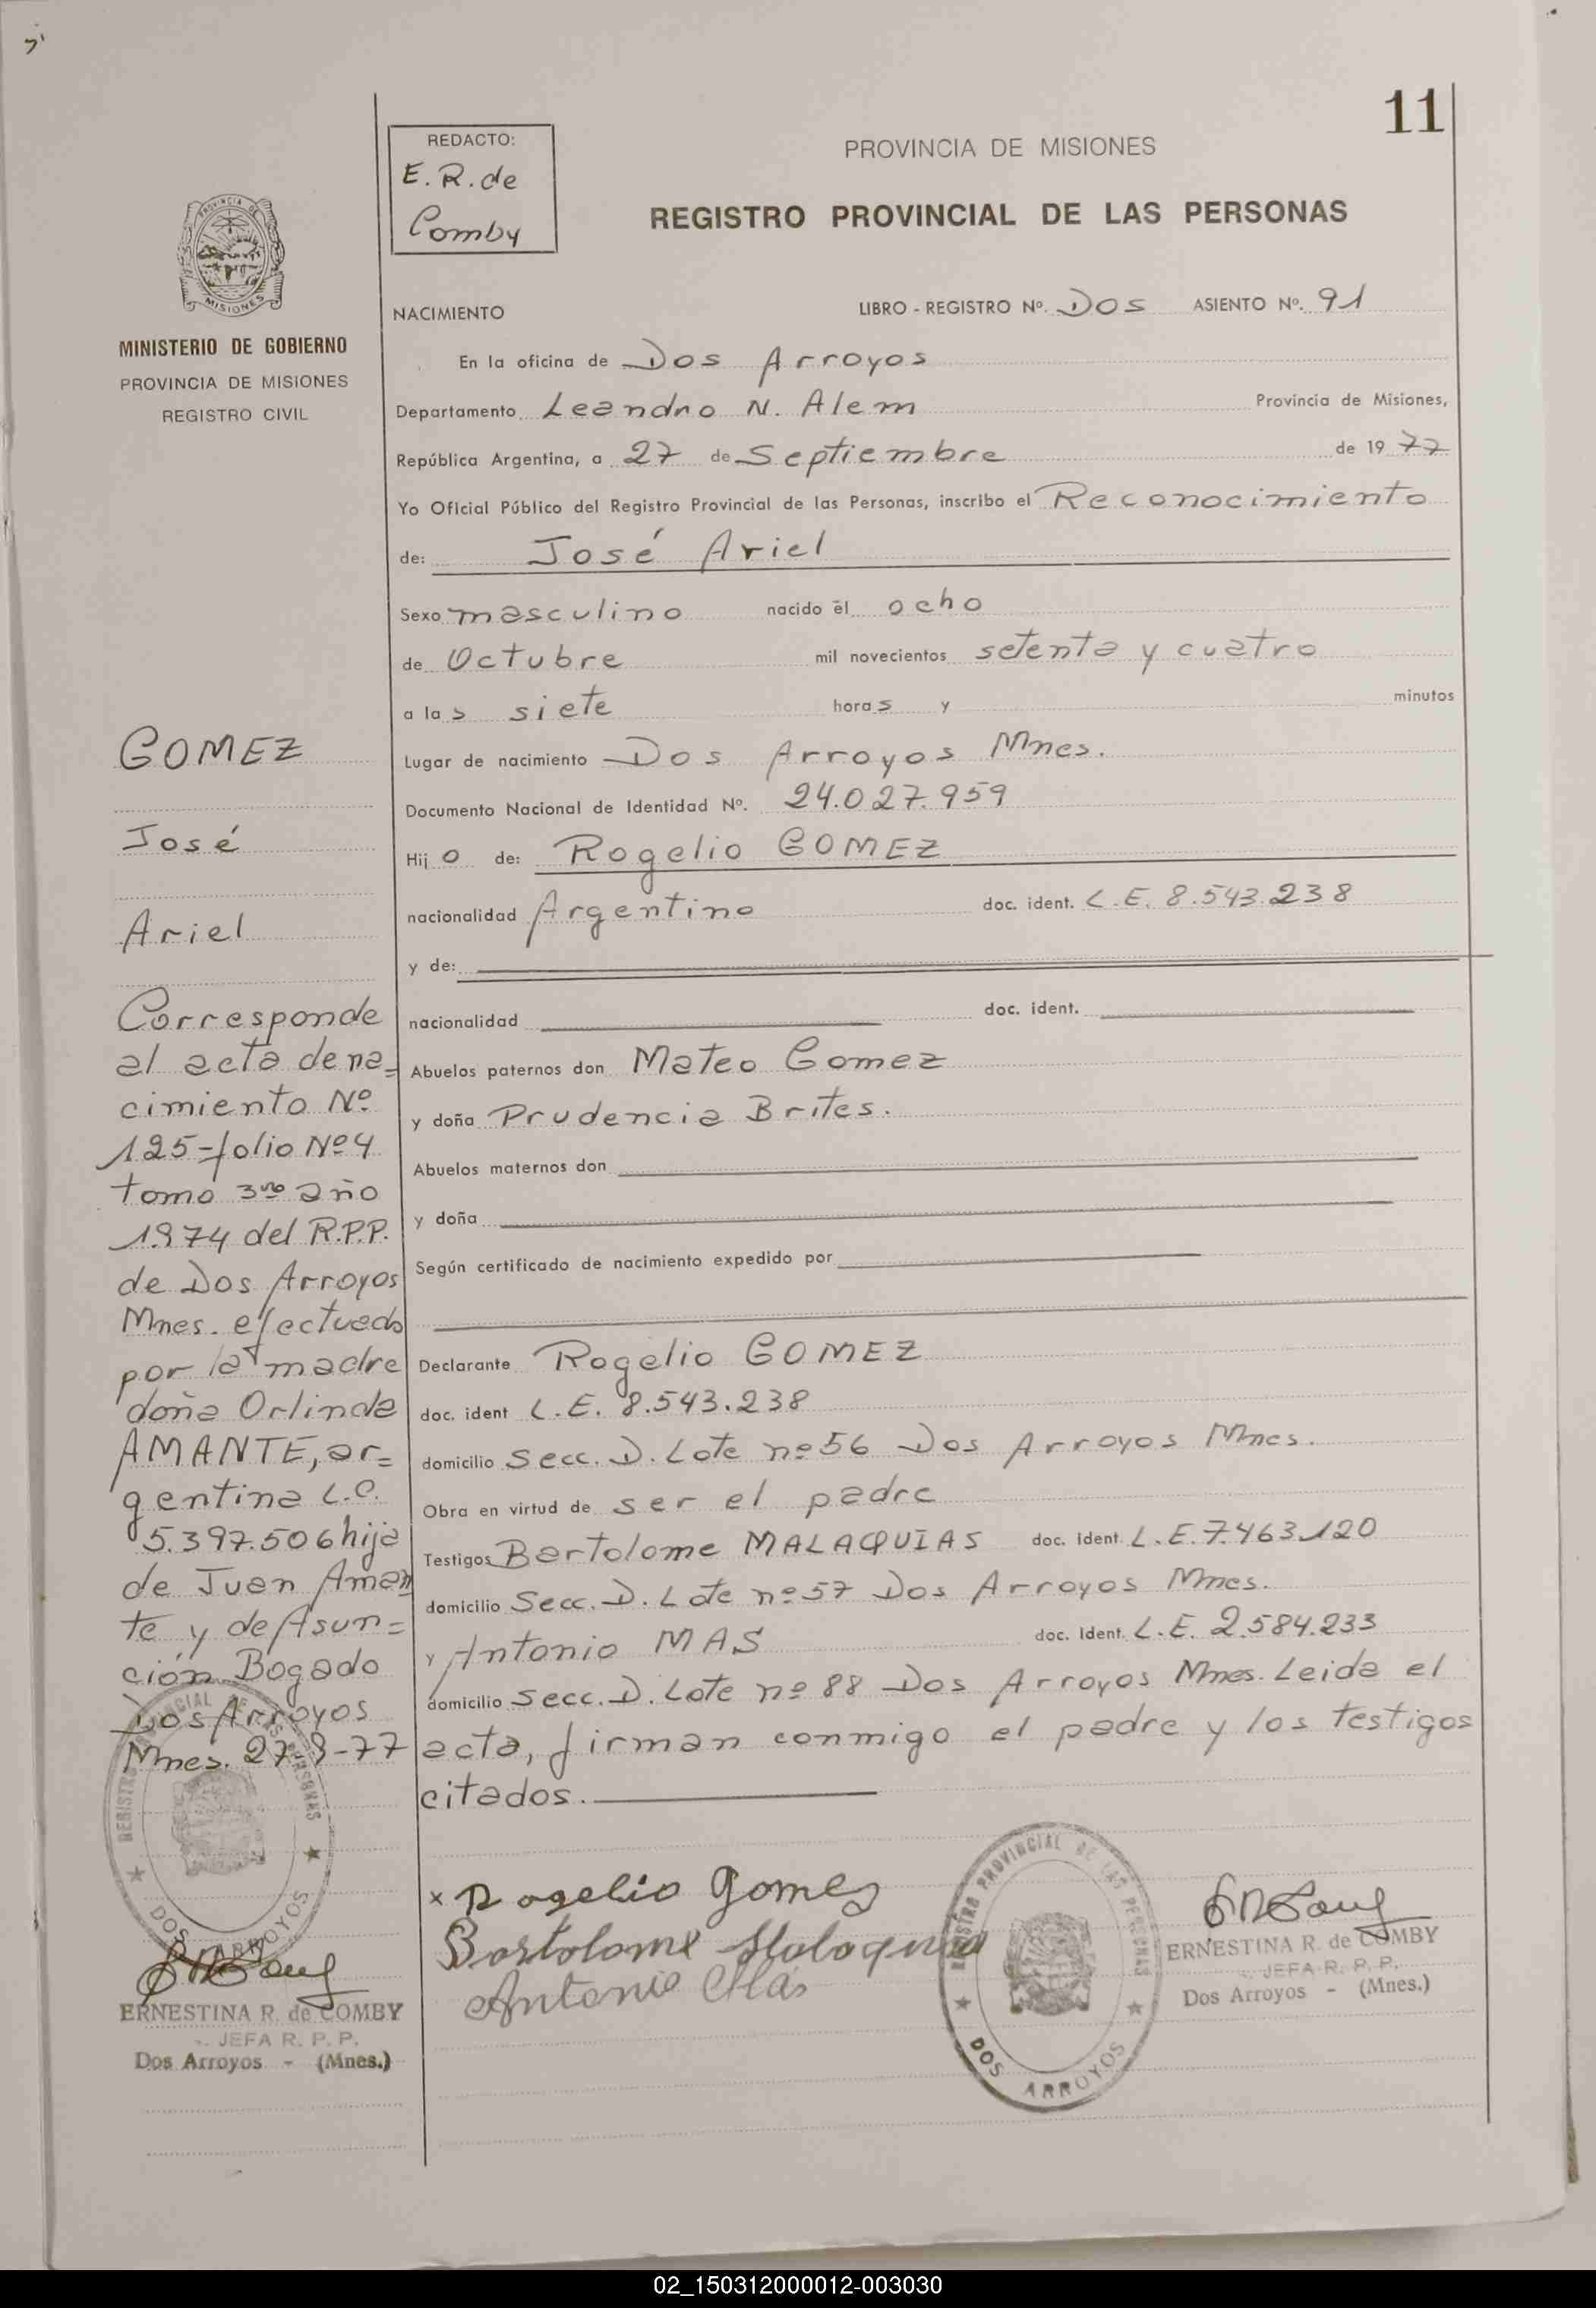 11
REDACTO:
E.R. de
Comby
PROVINCIA DE MISIONES
REGISTRO PROVINCIAL DE LAS PERSONAS
PROVINCIA DE
MISIONES
MINISTERIO DE GOBIERNO
PROVINCIA DE MISIONES
REGISTRO CIVIL
NACIMIENTO LIBRO - REGISTRO Nº. Dos ASIENTO Nº. 91
En la oficina de Dos Arroyos
Departamento Leandro N. Alem Provincia de Misiones,
República Argentina, a 27 de Septiembre de 19 77
Yo Oficial Público del Registro Provincial de las Personas, inscribo el Reconocimiento
de: José Ariel
Sexo masculino nacido el ocho
de Octubre mil novecientos setenta y cuatro
a las siete horas y minutos
Lugar de nacimiento Dos Arroyos Mnes.
Documento Nacional de Identidad Nº. 24.027.959
Hijo de: Rogelio GOMEZ
nacionalidad Argentino doc. ident. L.E. 8.543.238
y de:
nacionalidad doc. ident.
Abuelos paternos don Mateo Gomez
y doña Prudencia Brites.
Abuelos maternos don
y doña
Según certificado de nacimiento expedido por
Declarante Rogelio GOMEZ
doc. ident L.E. 8.543.238
domicilio Secc. D. Lote nº 56 Dos Arroyos Mnes.
Obra en virtud de ser el padre
Testigos Bartolome MALAQUIAS doc. Ident. L.E. 7.463.120
domicilio Secc. D. Lote nº 57 Dos Arroyos Mnes.
y Antonio MAS doc. Ident. L.E. 2.584.233
domicilio Secc. D. Lote nº 88 Dos Arroyos Mnes. Leida el
acta, firman conmigo el padre y los testigos
citados.
GOMEZ
José
Ariel
Corresponde
al acta de na=
cimiento Nº
125-folio Nº 4
tomo 3ro año
1974 del R.P.P.
de Dos Arroyos
Mnes. efectuado
por la madre
doña Orlinda
AMANTE, ar=
gentina L.C.
5.397.506 hija
de Juan Aman
te y de Asun=
ción Bogado
Dos Arroyos
Mnes. 27-9-77
REGISTRO PROVINCIAL DE LAS PERSONAS
DOS ARROYOS
ERNESTINA R. de COMBY
JEFA R. P. P.
Dos Arroyos - (Mnes.)
x Rogelio Gomez
Bartolome Malaquias
Antonio Más
REGISTRO PROVINCIAL DE LAS PERSONAS
DOS ARROYOS
ERNESTINA R. de COMBY
JEFA R. P. P.
Dos Arroyos - (Mnes.)
02_150312000012-003030